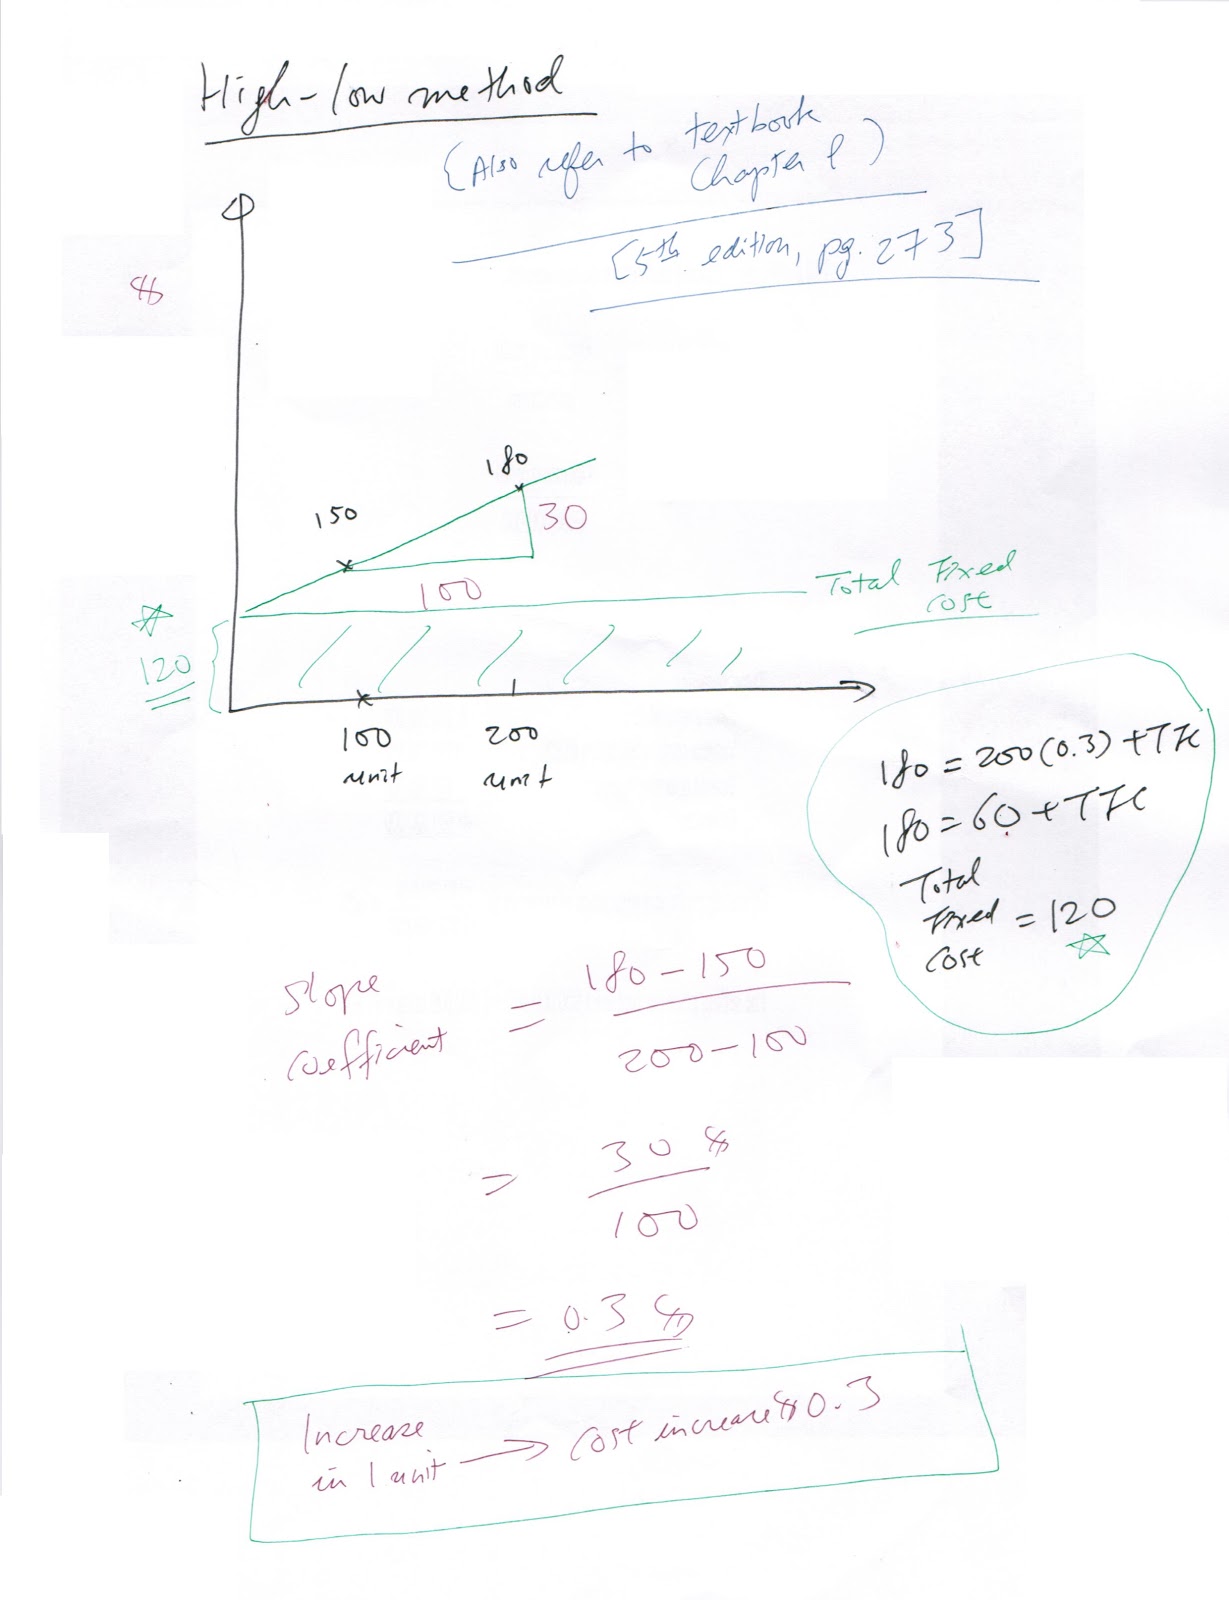 High-low method
(Also refer to textbook
Chapter 8)
[5th edition, pg. 273]
$
180
150
30
100
Total Fixed
cost
120
100
unit
200
unit
180 = 200(0.3) + TFC
180 = 60 + TFC
Total
Fixed = 120
cost
Slope
coefficient = 180 - 150
200 - 100
= 30 $
100
= 0.3 $
Increase
in 1 unit → cost increase $0.3